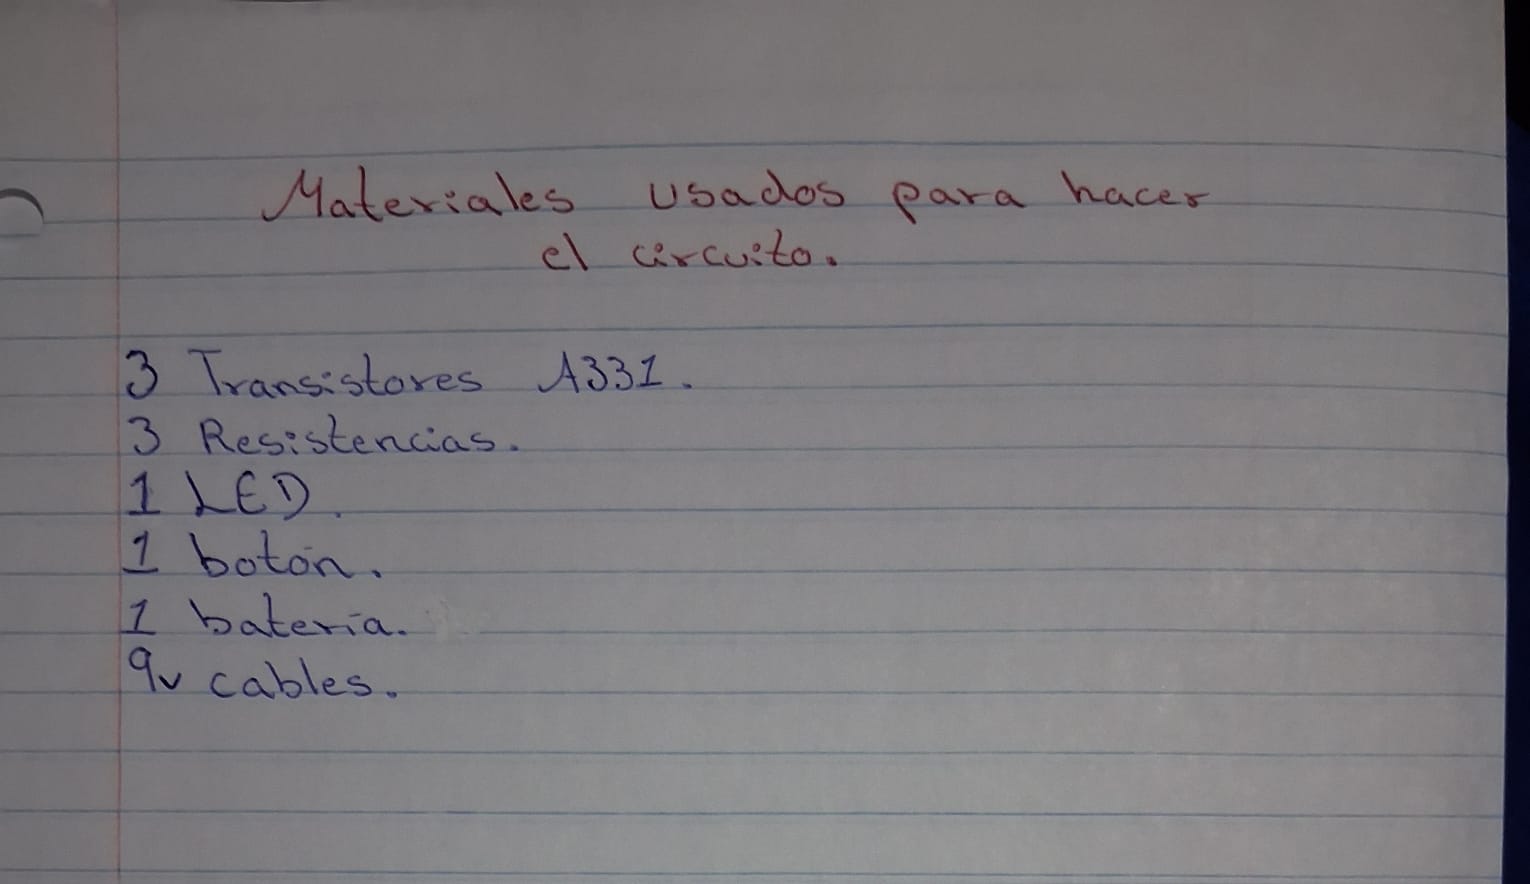 Materiales usados para hacer
el circuito.
3 Transistores A331.
3 Resistencias.
1 LED.
1 botón.
1 batería.
9v cables.